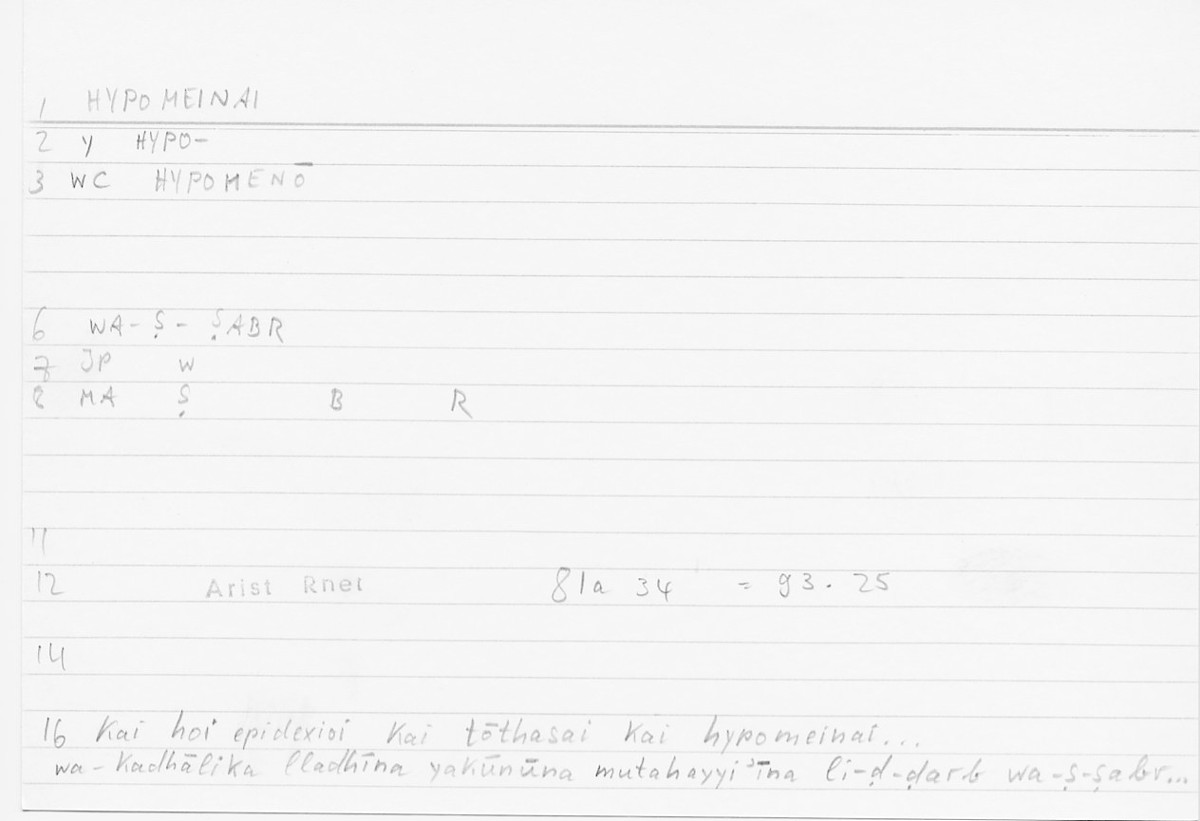 1 HYPOMEINAI
2 y HYPO-
3 WC HYPOMENŌ
6 WA-Ṣ-ṢABR
7 JP W
8 MA Ṣ B R
11
12 Arist Rhet 81a 34 = 93. 25
14
16 Kai hoi epidexioi Kai tōthasai Kai hypomeinai...
wa-Kadhālika lladhīna yakūnūna mutahayyiʾīna li-ḍ-ḍarb wa-ṣ-ṣabr...